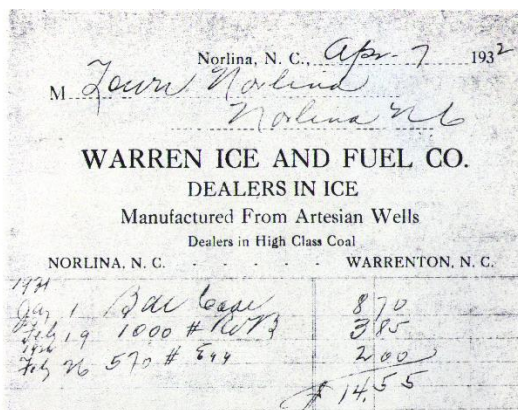 Norlina, N. C., Apr. 7 1932
M Town Norlina
Norlina NC
WARREN ICE AND FUEL CO.
DEALERS IN ICE
Manufactured From Artesian Wells
Dealers in High Class Coal
NORLINA, N. C. - - - - - WARRENTON, N. C.
1931
1 Bal 8 70
Feb 19 1000 # 3 85
Feb 26 570 # Egg 2 00
$ 14.55